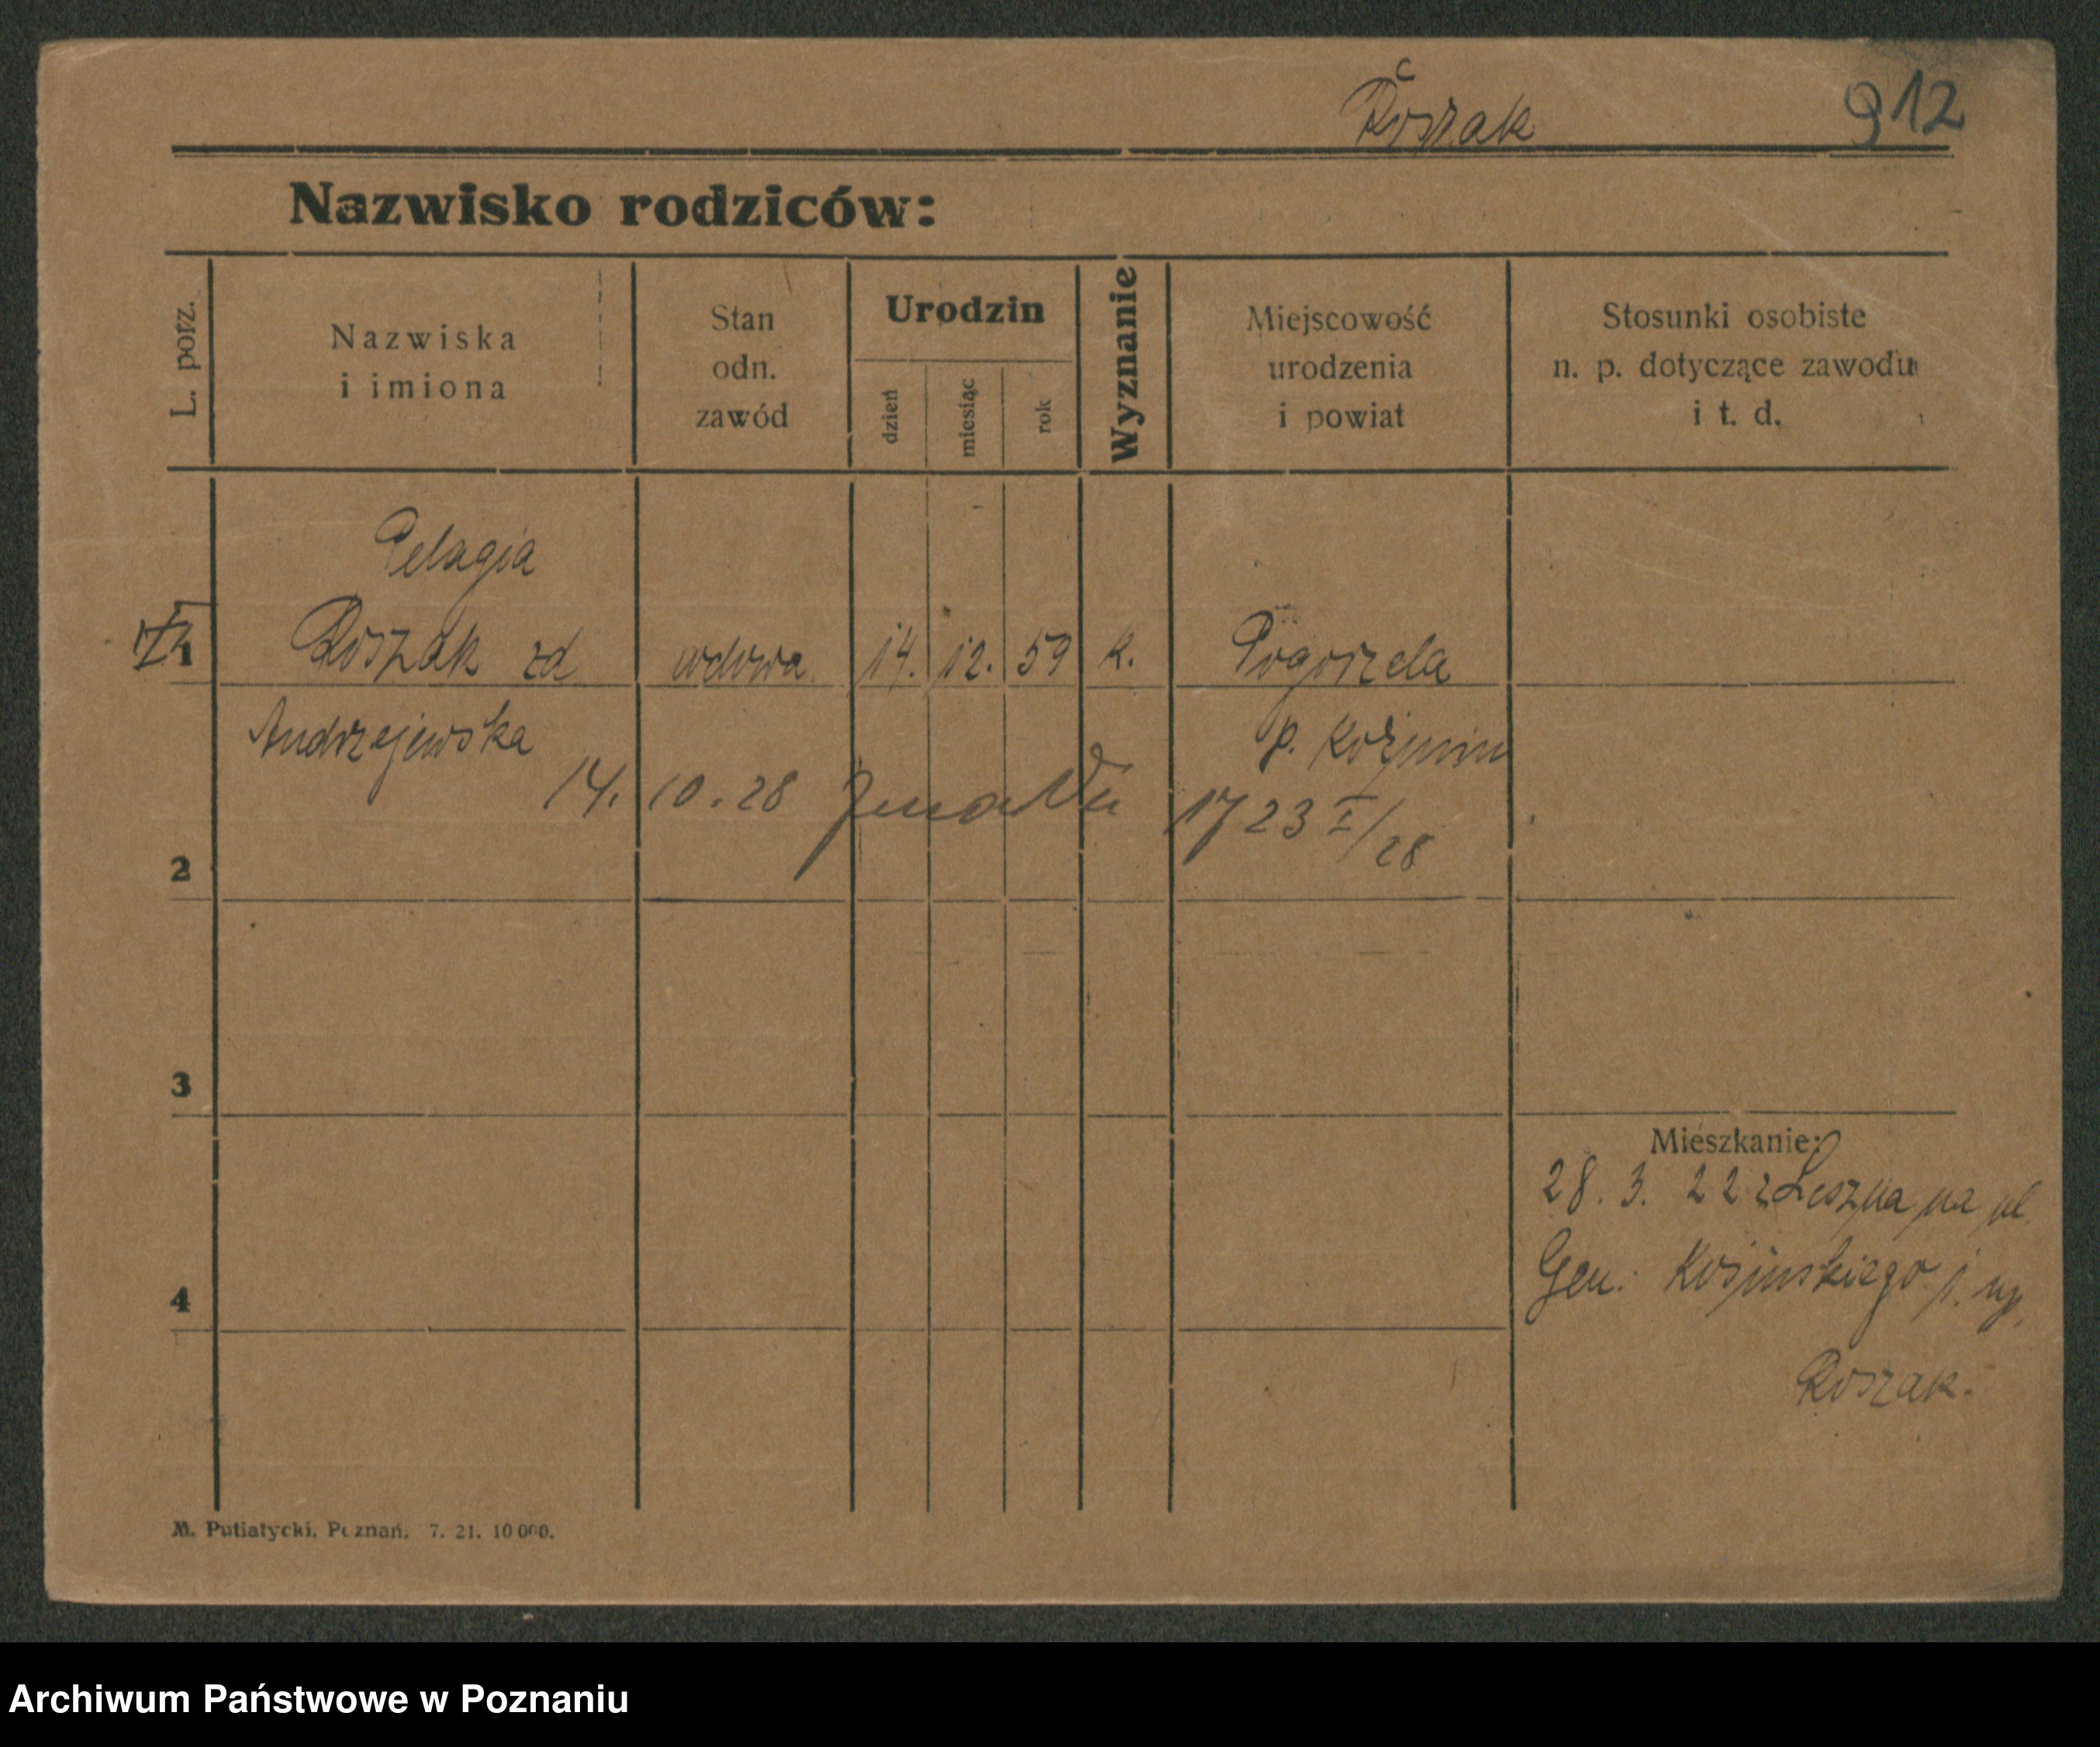 Roszak 912
Nazwisko rodziców:
L. porz.
Nazwiska
i imiona
Stan
odn.
zawód
Urodzin
dzień
miesiąc
rok
Wyznanie
Miejscowość
urodzenia
i powiat
Stosunki osobiste
n. p. dotyczące zawodu
i t. d.
Pelagia
1 Roszak zd wdowa 14. 12. 59 k. Pogorzela
Andrzejewska p. Koźmin
14. 10. 28 zmarła 1723 I/28
2
3
Mieszkanie:
28. 3. 22 z Leszna na pl.
Gen. Kosińskiego
4
Roszak.
M. Putiatycki. Poznań. 7. 21. 10 000.
Archiwum Państwowe w Poznaniu